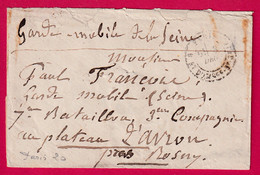 Garde mobile de la Seine
Monsieur
Paul François
Garde mobile (Seine)
7e Bataillon, 3me Compagnie
au plateau d'avron
près Rosny
Paris 20